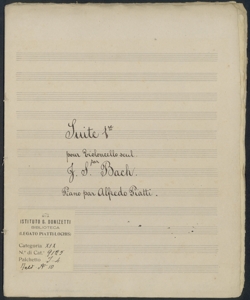 Suite 1re
pour Violoncello seul
par
J. S. Bach.
Piano par Alfredo Piatti.
ISTITUTO G. DONIZETTI
BIBLIOTECA
LEGATO PIATTI-LOCHIS
Categoria XIX
N.° di Cat.
Palchetto